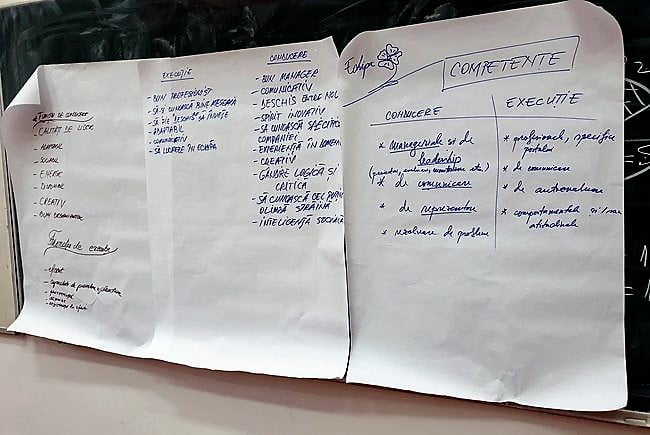 Funcții de conducere
CALITĂȚI DE LIDER
- ADAPTABIL
- SOCIABIL
- ENERGIC
- CREATIV
- BUN ORGANIZATOR
Funcții de execuție
- efort
EXECUȚIE
- BUN PROFESIONIST
- SĂ-ȘI CUNOASCĂ BINE MESERIA
- SĂ FIE DESCHIS SĂ ÎNVEȚE
- ADAPTABIL
- COMUNICATIV
- SĂ LUCREZE ÎN ECHIPĂ
CONDUCERE
- BUN MANAGER
- COMUNICATIV
- DESCHIS SPRE NOU
- SPIRIT INOVATIV
- SĂ CUNOASCĂ SPECIFICUL
COMPANIEI
- EXPERIENȚĂ ÎN DOMENIU
- CREATIV
- GÂNDIRE LOGICĂ ȘI
CRITICĂ
- SĂ CUNOASCĂ CEL PUȚIN
O LIMBĂ STRĂINĂ
- INTELIGENȚĂ SOCIALĂ
Echipa
COMPETENTE
CONDUCERE
* manageriale si de
leadership
* de comunicare
* de reprezentare
* rezolvare de probleme
EXECUTIE
* profesionale, specifice
postului
* de comunicare
* de autoevaluare
* comportamentale și/sau
atitudinale